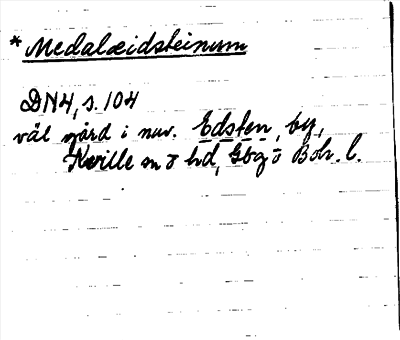 * Medalæidsteinum
DN4, s. 104
väl gård i nuv. Edsten, by,
Kville sn o hd, Gbg o Boh. l.